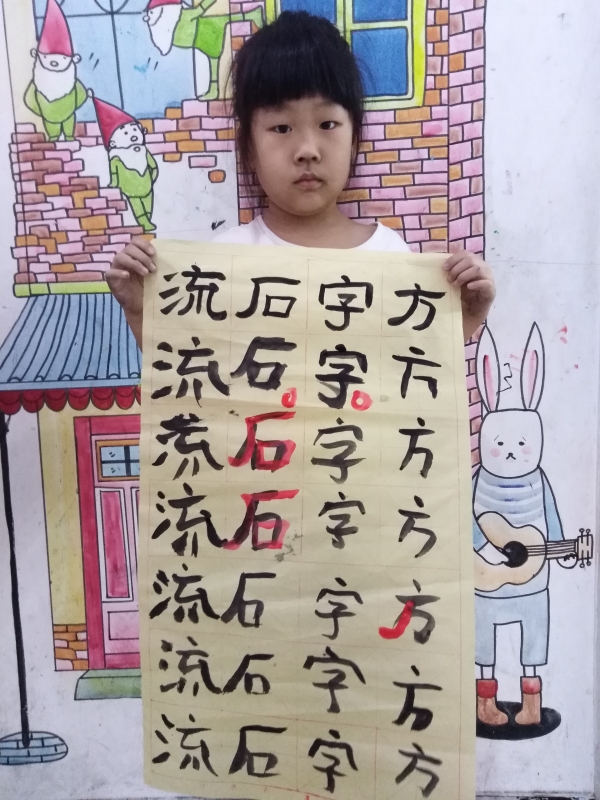 流石字方
流石字方
流石字方
流石字方
流石字方
流石字方
流石字方